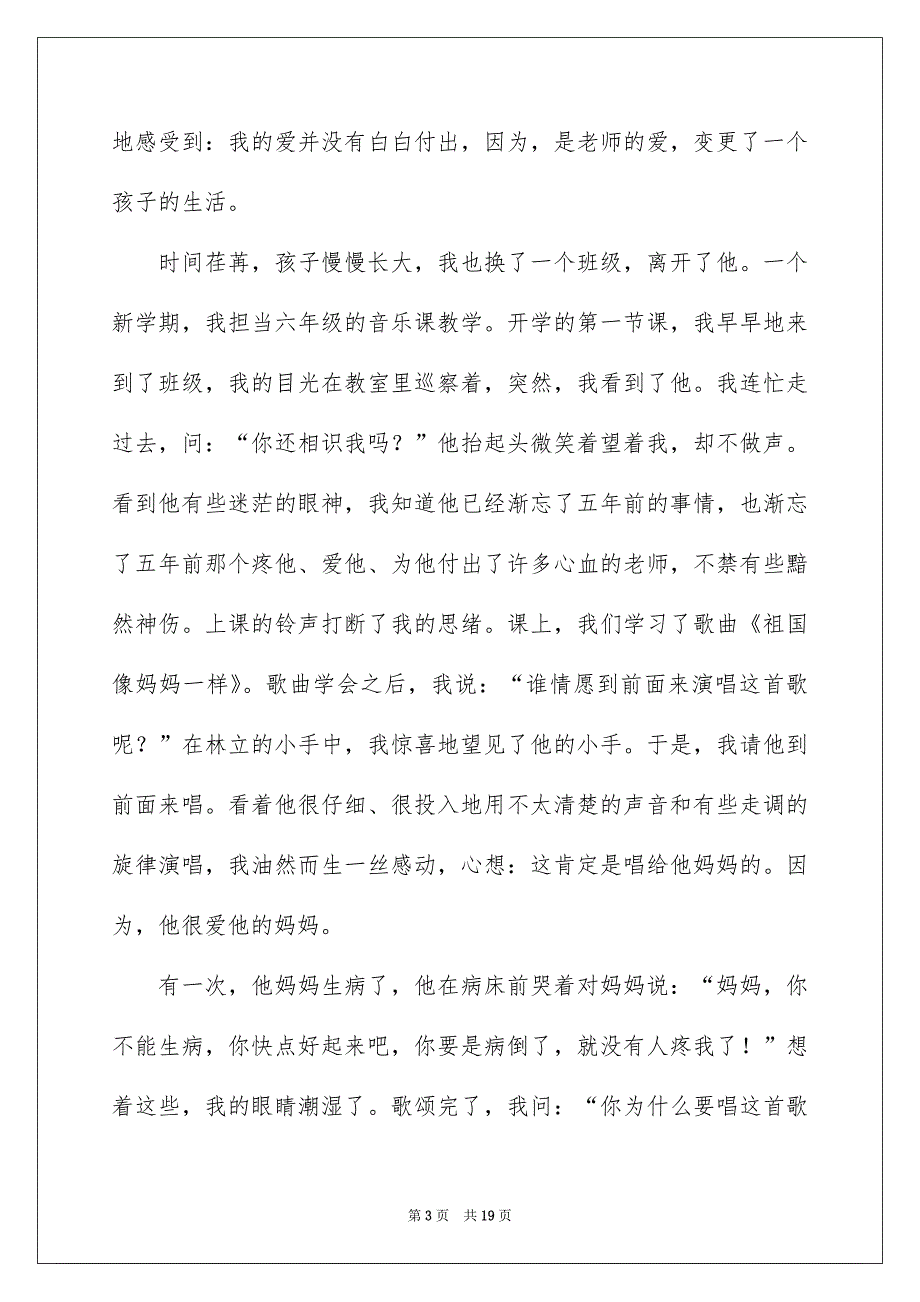 地感受到：我的爱并没有白白付出，因为，是老师的爱，变更了一个
孩子的生活。
时间荏苒，孩子慢慢长大，我也换了一个班级，离开了他。一个
新学期，我担当六年级的音乐课教学。开学的第一节课，我早早地来
到了班级，我的目光在教室里巡察着，突然，我看到了他。我连忙走
过去，问：“你还相识我吗？”他抬起头微笑着望着我，却不做声。
看到他有些迷茫的眼神，我知道他已经渐忘了五年前的事情，也渐忘
了五年前那个疼他、爱他、为他付出了许多心血的老师，不禁有些黯
然神伤。上课的铃声打断了我的思绪。课上，我们学习了歌曲《祖国
像妈妈一样》。歌曲学会之后，我说：“谁情愿到前面来演唱这首歌
呢？”在林立的小手中，我惊喜地望见了他的小手。于是，我请他到
前面来唱。看着他很仔细、很投入地用不太清楚的声音和有些走调的
旋律演唱，我油然而生一丝感动，心想：这肯定是唱给他妈妈的。因
为，他很爱他的妈妈。
有一次，他妈妈生病了，他在病床前哭着对妈妈说：“妈妈，你
不能生病，你快点好起来吧，你要是病倒了，就没有人疼我了！”想
着这些，我的眼睛潮湿了。歌颂完了，我问：“你为什么要唱这首歌
第 3 页 共 19 页